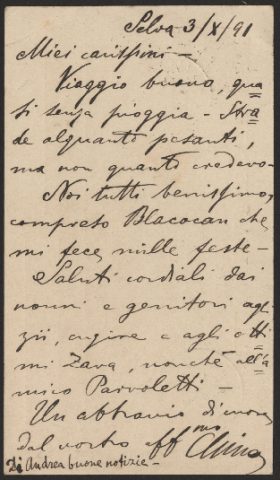 Selva 3/X/91
Miei carissimi -
Viaggio buono, qua=
si senza pioggia - Stra=
de alquanto pesanti,
ma non quanto credevo -
Noi tutti benissimo,
compreso Blacocan che
mi fece mille feste -
Saluti cordiali dai
nonni e genitori agli
zii, cugine e agli otti=
mi Zava, nonchè all'a=
mico Parvoletti -
Un abbraccio di cuore
dal vostro aff.mo
Di Andrea buone notizie -